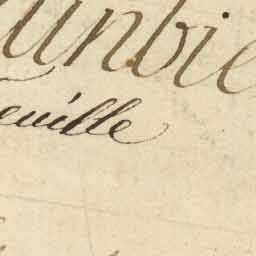 unbie
euille